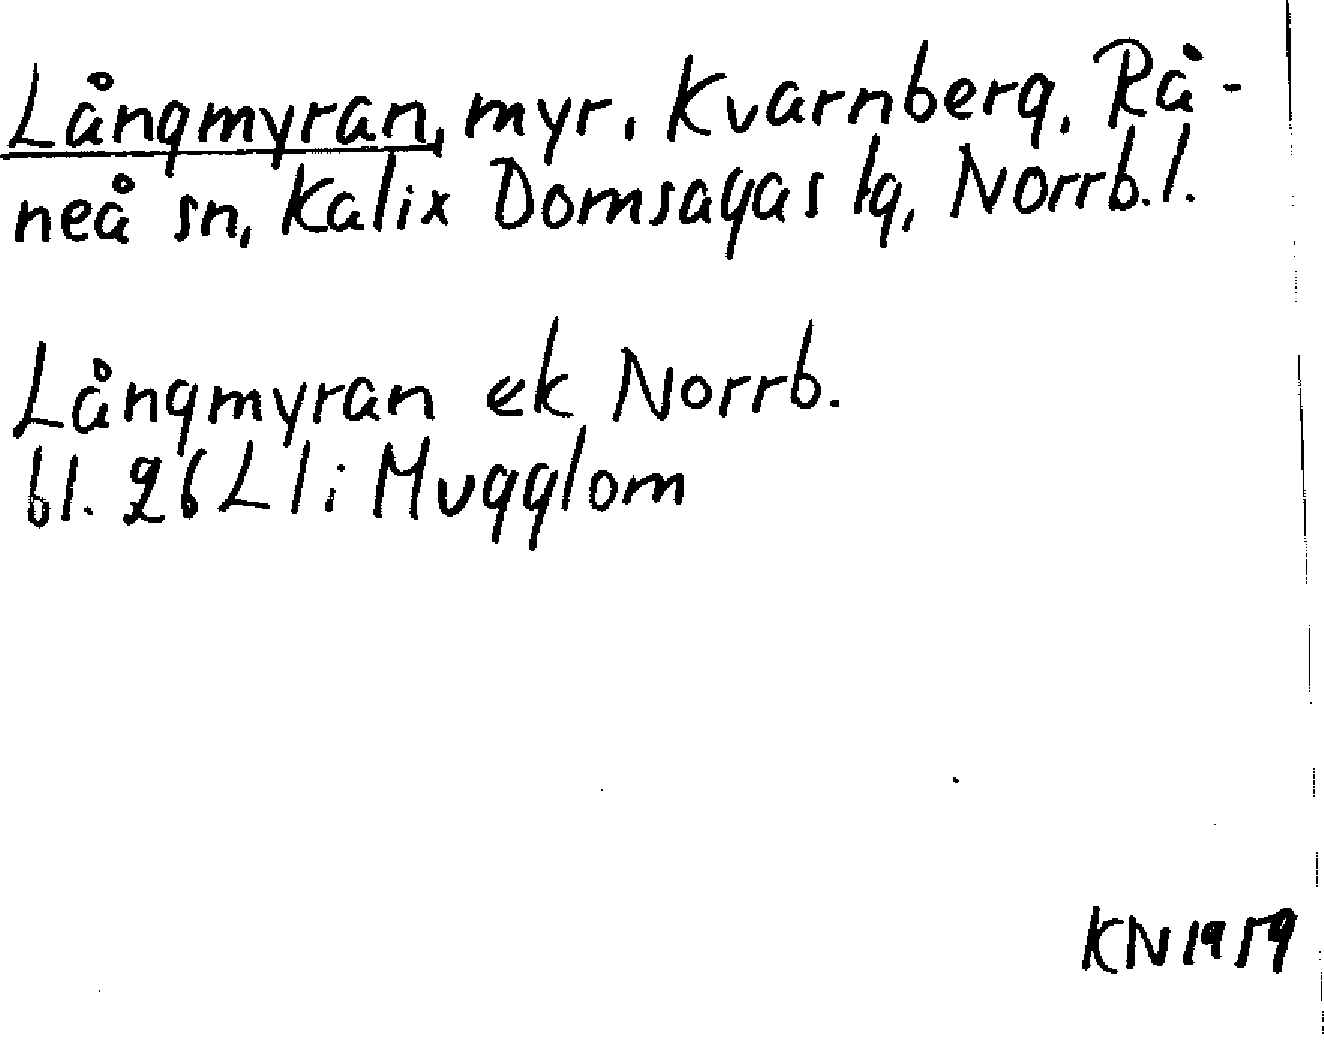 Långmyran, myr. Kvarnberg, Rå-
neå sn, Kalix Domsagas lg, Norrb. l.
Långmyran ek Norrb.
bl. 26 L l; Mugglom
KN 1959